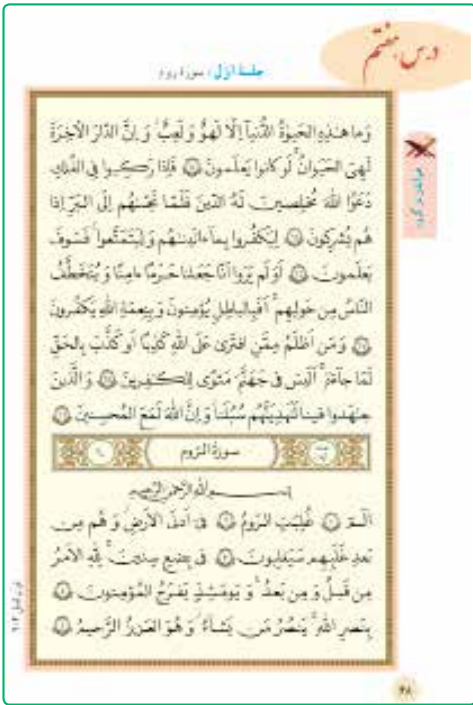 درس هفتم
جلسهٔ اوّل : سورهٔ روم
وَ ما هٰذِهِ الحَيوٰةُ الدُّنيآ اِلّا لَهوٌ وَ لَعِبٌ وَ اِنَّ الدّارَ الآخِرَةَ
لَهِىَ الحَيَوانُ لَو كانوا يَعلَمونَ فَاِذا رَكِبوا فِى الفُلكِ
دَعَوُا اللّٰهَ مُخلِصينَ لَهُ الدّينَ فَلَمّا نَجّىٰهُم اِلَى البَرِّ اِذا
هُم يُشرِكونَ لِيَكفُروا بِمآ ءاتَينٰهُم وَ لِيَتَمَتَّعوا فَسَوفَ
يَعلَمونَ اَوَلَم يَرَوا اَنّا جَعَلنا حَرَمًا ءامِنًا وَ يُتَخَطَّفُ
النّاسُ مِن حَولِهِم اَفَبِالباطِلِ يُؤمِنونَ وَ بِنِعمَةِ اللّٰهِ يَكفُرونَ
وَ مَن اَظلَمُ مِمَّنِ افتَرىٰ عَلَى اللّٰهِ كَذِبًا اَو كَذَّبَ بِالحَقِّ
لَمّا جآءَهٗ اَلَيسَ فى جَهَنَّمَ مَثوًى لِلكٰفِرينَ وَ الَّذينَ
جٰهَدوا فينا لَنَهدِيَنَّهُم سُبُلَنا وَ اِنَّ اللّٰهَ لَمَعَ المُحسِنينَ
سورة الرّوم
بِسمِ اللّٰهِ الرَّحمٰنِ الرَّحيمِ
الٓمٓ غُلِبَتِ الرّومُ فى اَدنَى الاَرضِ وَ هُم مِن
بَعدِ غَلَبِهِم سَيَغلِبونَ فى بِضعِ سِنينَ لِلّٰهِ الاَمرُ
مِن قَبلُ وَ مِن بَعدُ وَ يَومَئِذٍ يَفرَحُ المُؤمِنونَ
بِنَصرِ اللّٰهِ يَنصُرُ مَن يَشآءُ وَ هُوَ العَزيزُ الرَّحيمُ
۶۸